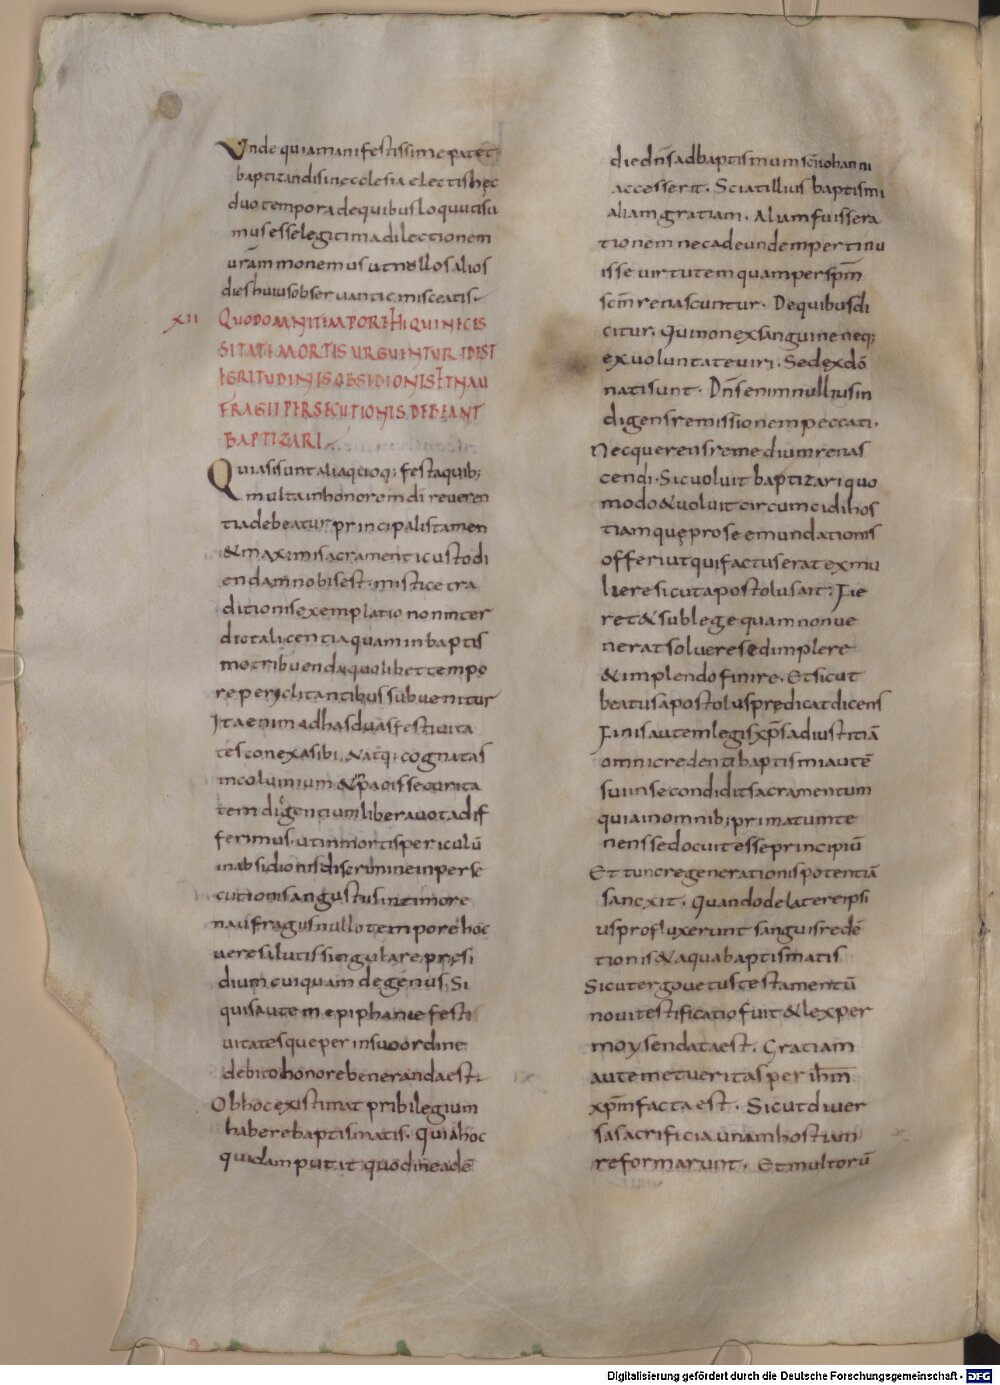 Unde quia manifestissime patet
baptizandis in ecclesia electis hęc
duo tempora de quibus loquuti su
mus esse legitima dilectionem
uram monemus ut nullos alios
dies huius obseruantię misceatis
XII QUOD OMNI TEMPORE HI QUI NECES
SITATE MORTIS URGUINTUR IDEST
EGRITUDINIS OBSIDIONIS ET NAU
FRAGII PERSECUTIONIS DEBEANT
BAPTIZARI
Quia si sunt alia quoq; festa quib;
multa in honorom di reueren
tia debeatur principalis tamen
& maximi sacramenti custodi
endam nobis est mistice tra
ditionis exemplatio non inter
dicta licentia qua in baptis
mo tribuendo quolibet tempo
re periclitantibus subuenitur
Ita enim ad has duas festiuita
tes conexa sibi & atq; cognatas
incolumium & pacis securita
tem digentium libera uota dif
ferimus. ut in mortis periculū
in absidionis discrimine in perse
cutionis angustiis in timore
naufragiis nullo tempore hoc
uere salutis singulare presi
dium cuiquam degenus. Si
quis autem epiphanie festi
uitates que per in suo ordine
debito honore beneranda est.
Ob hoc existimat pribilegium
habere baptismatis. Quia hoc
quidam putat quod in eadē
die dn̄s ad baptismum sc̄i iohanni
accesserit. Sciat illius baptismi
aliam gratiam. Aliam fuisse ra
tionem nec ad eundem pertinu
isse uirtutem quam per sp̄m
sc̄m renascuntur. De quibus di
citur. Qui non ex sanguine neq;
ex uoluntate uiri. Sed ex dō
nati sunt. Dn̄s enim nullius in
digens remissionem peccati.
Nec querens remedium renas
cendi. Sic uoluit baptizari quo
modo & uoluit circumcidi hos
tiamquę pro se emundationis
offeri ut qui factus erat ex mu
liere sicut apostolus ait. Fie
ret & sub lege quam non ue
nerat soluere sed implere
& implendo finire. Et sicut
beatus apostolus prędicat dicens
Finis autem legis xp̄s ad iustitiā
omni credenti baptismi autē
sui in se condidit sacramentum
quia in omnib; primatum te
nens se docuit esse principiū
Et tunc regenerationis potentiā
sancxit. Quando de latere ipsi
us profluxerunt sanguis redē
tionis & aqua baptismatis
Sicut ergo uetus testamentū
noui testificatio fuit & lex per
moysen data est. Gratiam
autem et ueritas per ih̄m
xp̄m facta est. Sicut diuer
sa sacrificia unam hostiam
reformarunt. Et multorū
Digitalisierung gefördert durch die Deutsche Forschungsgemeinschaft - DFG